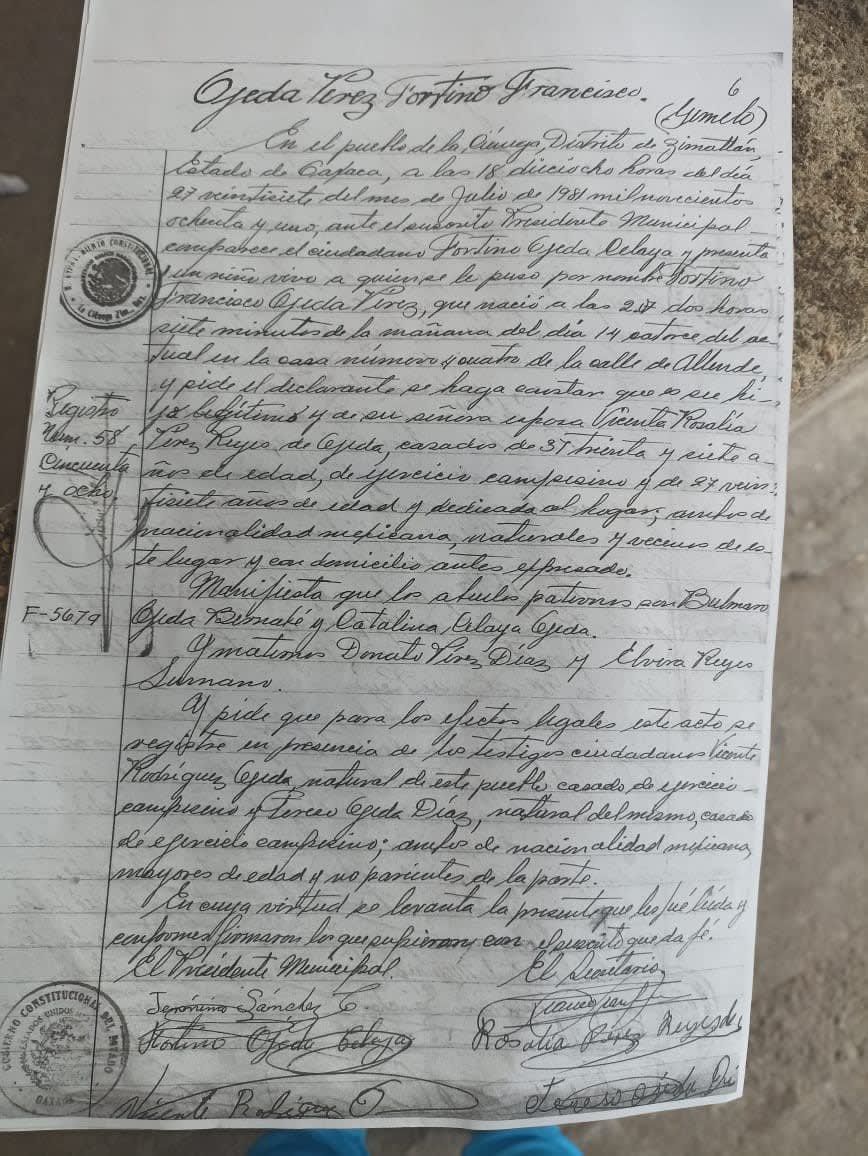 Ojeda Pérez Fortino Francisco. 6
(Gemelo)
En el pueblo de la Ciénega, Distrito de Zimatlán,
Estado de Oaxaca, a las 18 dieciocho horas del día
27 veintisiete del mes de Julio de 1981 mil novecientos
ochenta y uno, ante el suscrito Presidente Municipal
comparece el ciudadano Fortino Ojeda Celaya y presenta
un niño vivo a quien se le puso por nombre Fortino
Francisco Ojeda Pérez, que nació a las 2.07 dos horas
siete minutos de la mañana del día 14 catorce del ac-
tual en la casa número 4 cuatro de la calle de Allende,
y pide el declarante se haga constar que es su hi-
jo legítimo y de su señora esposa Vicenta Rosalía
Pérez Reyes de Ojeda, casados de 37 treinta y siete a-
ños de edad, de ejercicio campesino y de 27 vein-
tisiete años de edad y dedicada al hogar; ambos de
nacionalidad mexicana, naturales y vecinos de es-
te lugar y con domicilio antes expresado.
Registro
Núm. 58
Cincuenta
y ocho.
F-5679
Manifiesta que los abuelos paternos son Bulmaro
Ojeda Bernabé y Catalina Celaya Ojeda.
Y maternos Donato Pérez Díaz y Elvira Reyes
Sumano.
Y pide que para los efectos legales este acto se
registre en presencia de los testigos ciudadanos Vicente
Rodríguez Ojeda, natural de este pueblo, casado de ejercicio
campesino y Tereso Ojeda Díaz, natural del mismo, casado
de ejercicio campesino; ambos de nacionalidad mexicana,
mayores de edad y no parientes de la parte.
En cuya virtud se levanta la presente que les fué leída y
conformes firmaron los que supieron y con el suscrito que da fé.
El Presidente Municipal. El Secretario,
Jerónimo Sánchez C.
Fortino Ojeda Celaya Rosalia Pérez Reyes de
Vicente Rodríguez O Tereso Ojeda
GOBIERNO CONSTITUCIONAL DEL ESTADO
ESTADOS UNIDOS
OAXACA